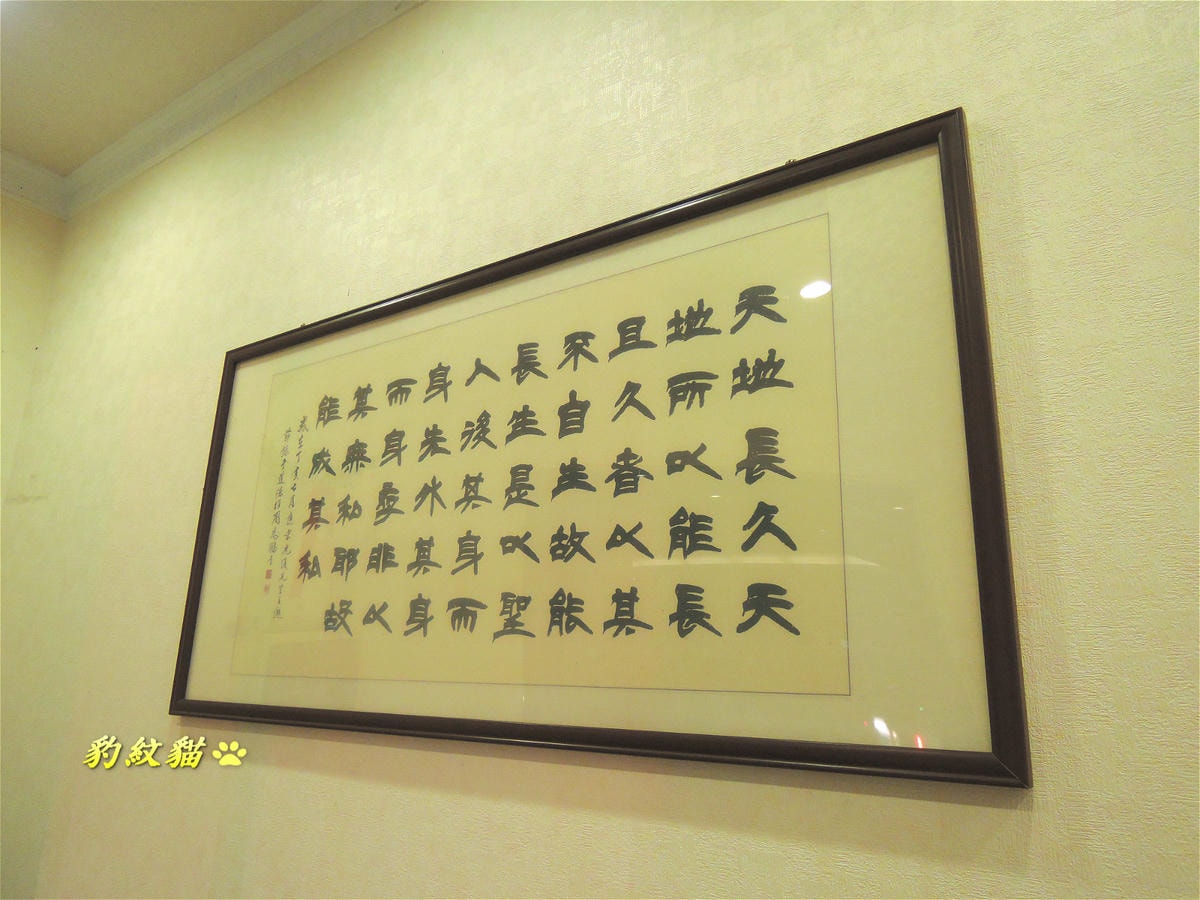 天地長久天
地所以能長
且久者以其
不自生故能
長生是以聖
人後其身而
身先外其身
而身存非以
其無私耶故
能成其私
歲在丁亥
豹紋貓